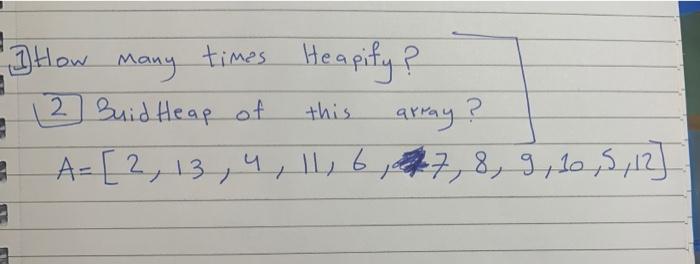 1 How many times Heapify?
2 BuidHeap of this array?
A=[2, 13, 4, 11, 6, 7, 8, 9, 10, 5, 12]